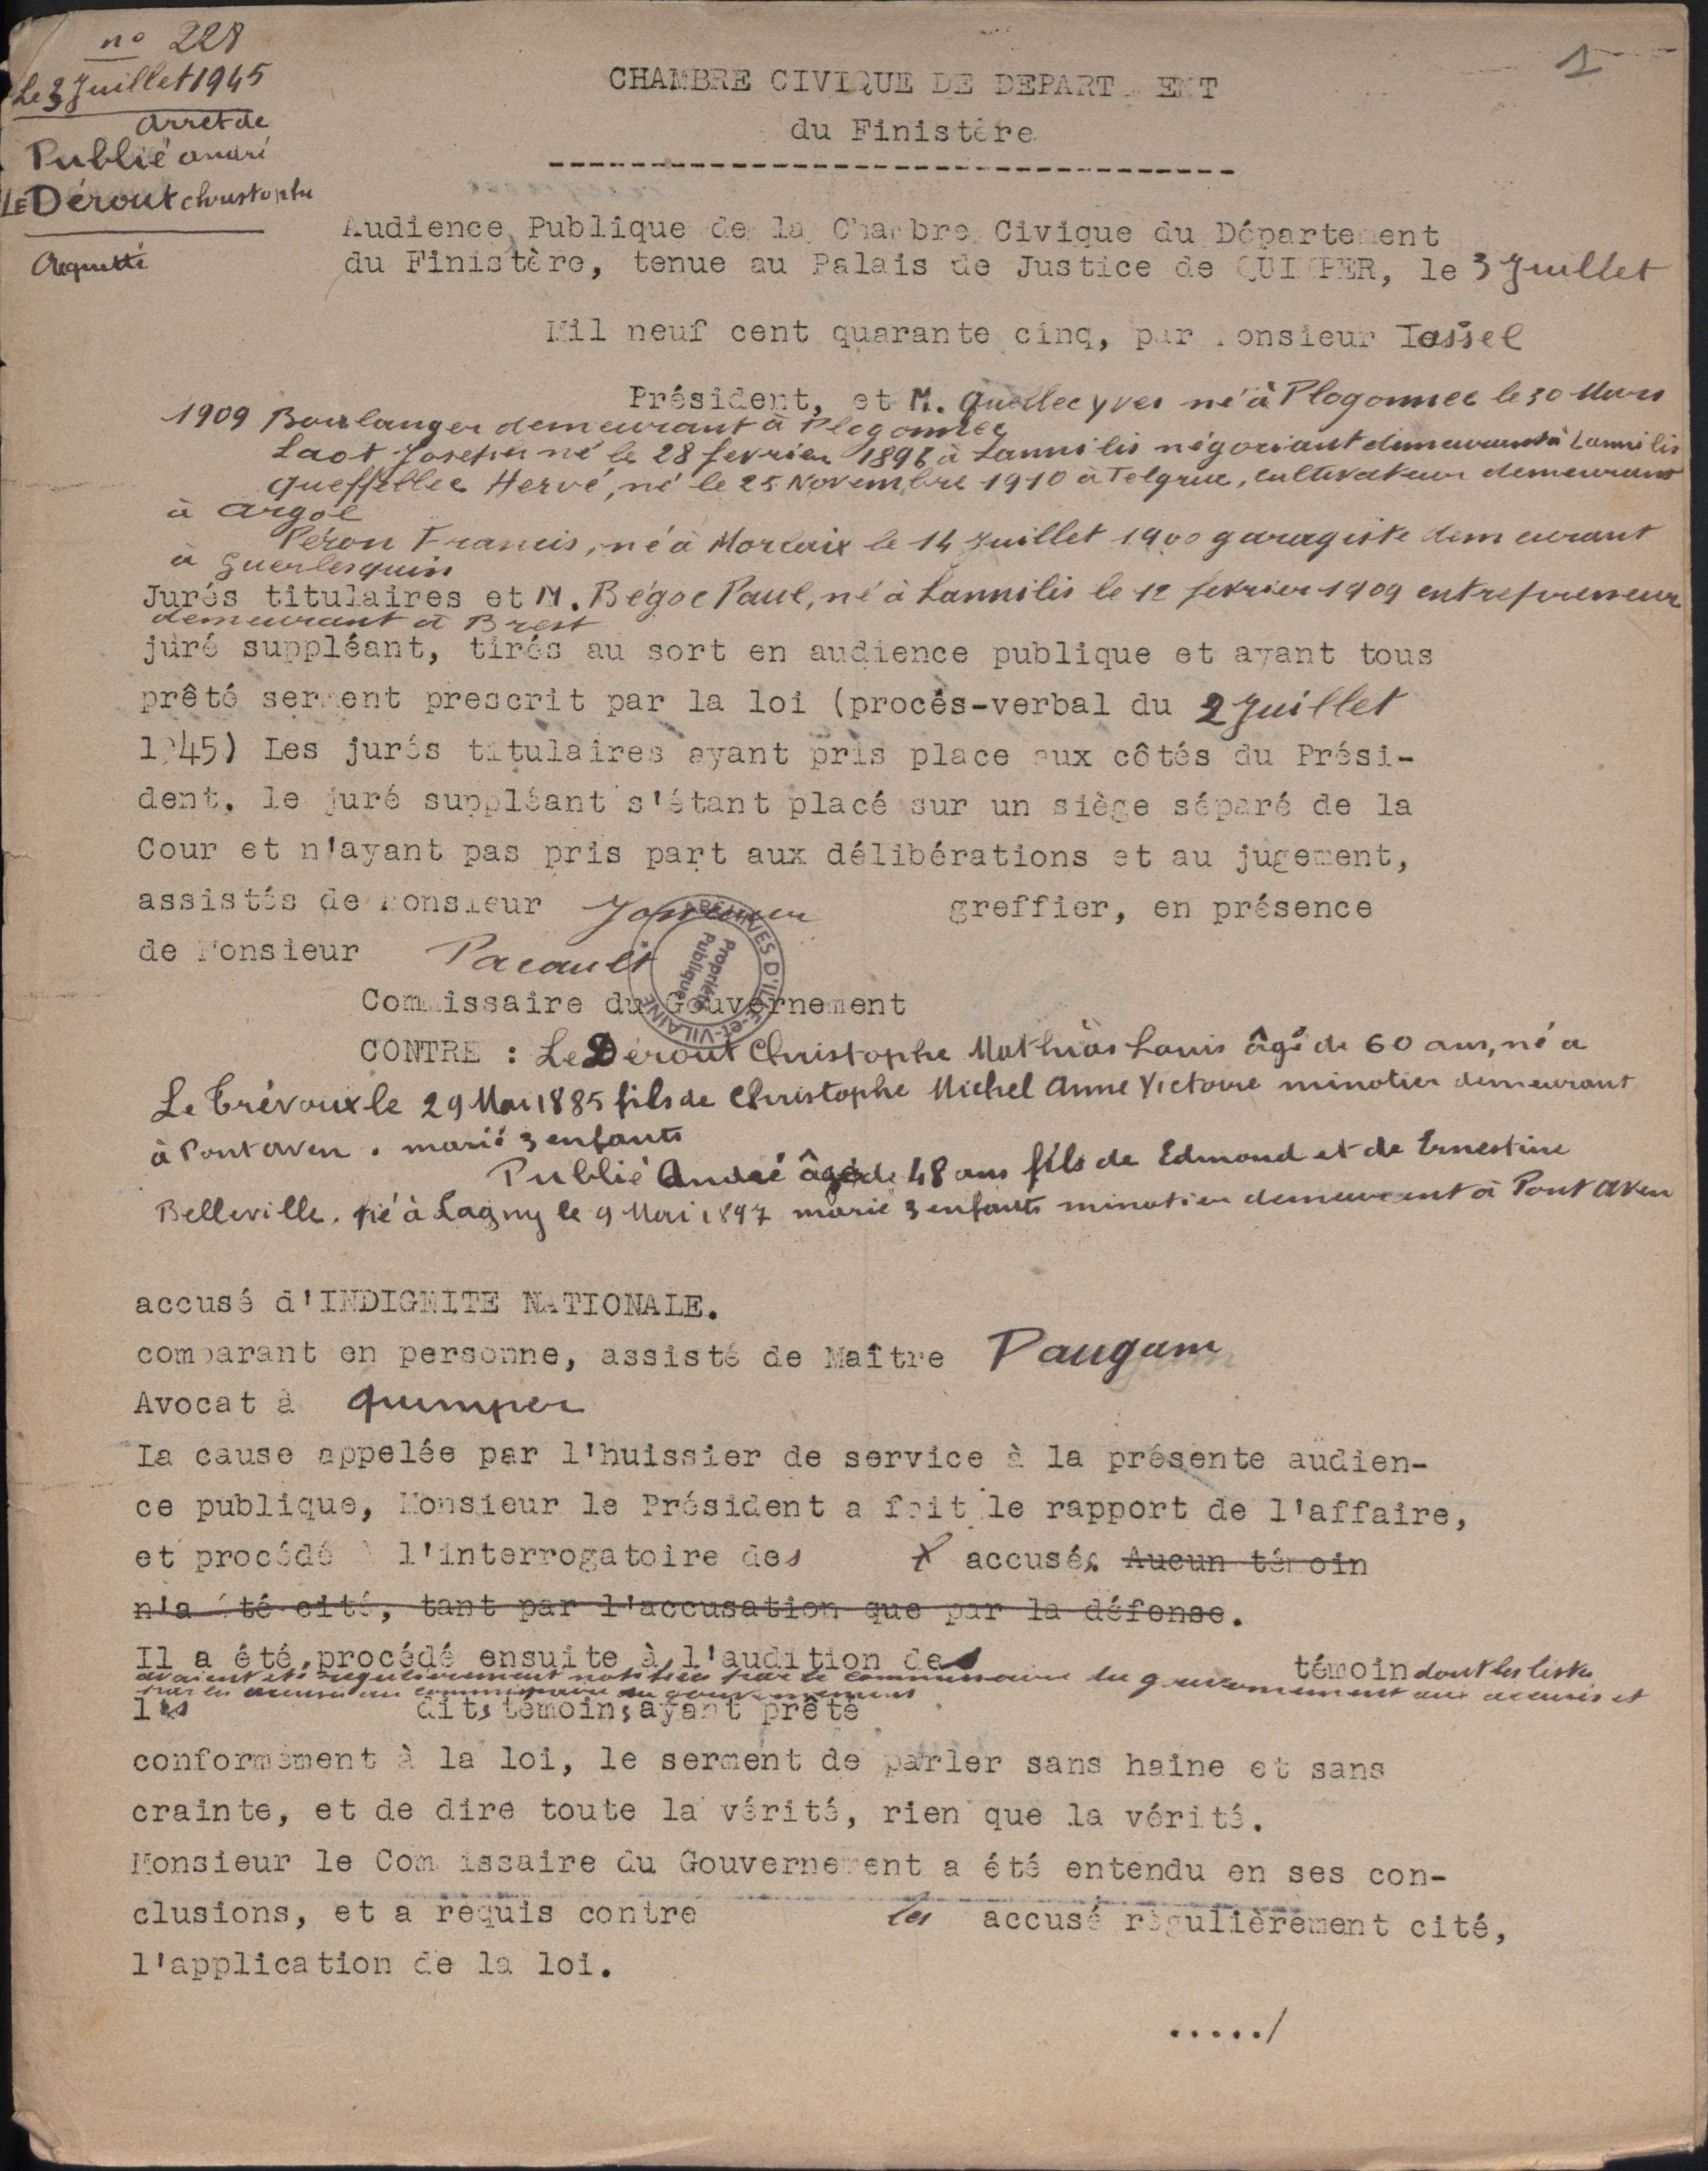 n° 228
Le 3 Juillet 1945
arret de
Publié andré
LE Dérout christophe
Acquitté
1
CHAMBRE CIVIQUE DE DEPARTEMENT
du Finistère
Audience Publique de la Chambre Civique du Département
du Finistère, tenue au Palais de Justice de QUIMPER, le 3 Juillet
Mil neuf cent quarante cinq, par Monsieur Tassel
Président, et M. Quellec yves né à Plogonnec le 30 Mars
1909 Boulanger demeurant à Plogonnec
Laot Joseph né le 28 fevrier 1896 à Lannilis négociant demeurant à Lannilis
Queffellec Hervé, né le 25 Novembre 1910 à Telgruc, cultivateur demeurant
à argol
Péron Francis, né à Morlaix le 14 Juillet 1900 garagiste demeurant
à guerlesquin
Jurés titulaires et M. Bégoc Paul, né à Lannilis le 12 fevrier 1909 entrepreneur
demeurant à Brest
juré suppléant, tirés au sort en audience publique et ayant tous
prêté serment prescrit par la loi (procès-verbal du 2 Juillet
1945) Les jurés titulaires ayant pris place aux côtés du Prési-
dent, le juré suppléant s'étant placé sur un siège séparé de la
Cour et n'ayant pas pris part aux délibérations et au jugement,
assistés de Monsieur greffier, en présence
de Monsieur Pacault
ARCHIVES D'ILLE-et-VILAINE
Propriété
Publique
Commissaire du Gouvernement
CONTRE : Le Dérout Christophe Mathias Louis âgé de 60 ans, né a
Le Trévoux le 29 Mai 1885 fils de Christophe Michel Anne Victoire minotier demeurant
à Pont aven. marié 3 enfants
Publié André âgé de 48 ans fils de Edmond et de Ernestine
Belleville. né à Lagny le 9 Mai 1897 marié 3 enfants minotier demeurant à Pont Aven
accusé d'INDIGNITE NATIONALE.
comparant en personne, assisté de Maître Paugam
Avocat à quimper
La cause appelée par l'huissier de service à la présente audien-
ce publique, Monsieur le Président a fait le rapport de l'affaire,
et procédé à l'interrogatoire des accusés. Aucun témoin
n'a été cité, tant par l'accusation que par la défense.
Il a été procédé ensuite à l'audition des témoin dont les listes
avaient été regulierement notifiées par le commissaire du gouvernement aux accusés et
par les accusés au commissaire du gouvernement
les dits témoins ayant prêté
conformément à la loi, le serment de parler sans haine et sans
crainte, et de dire toute la vérité, rien que la vérité.
Monsieur le Commissaire du Gouvernement a été entendu en ses con-
clusions, et a requis contre les accusé régulièrement cité,
l'application de la loi.
...../